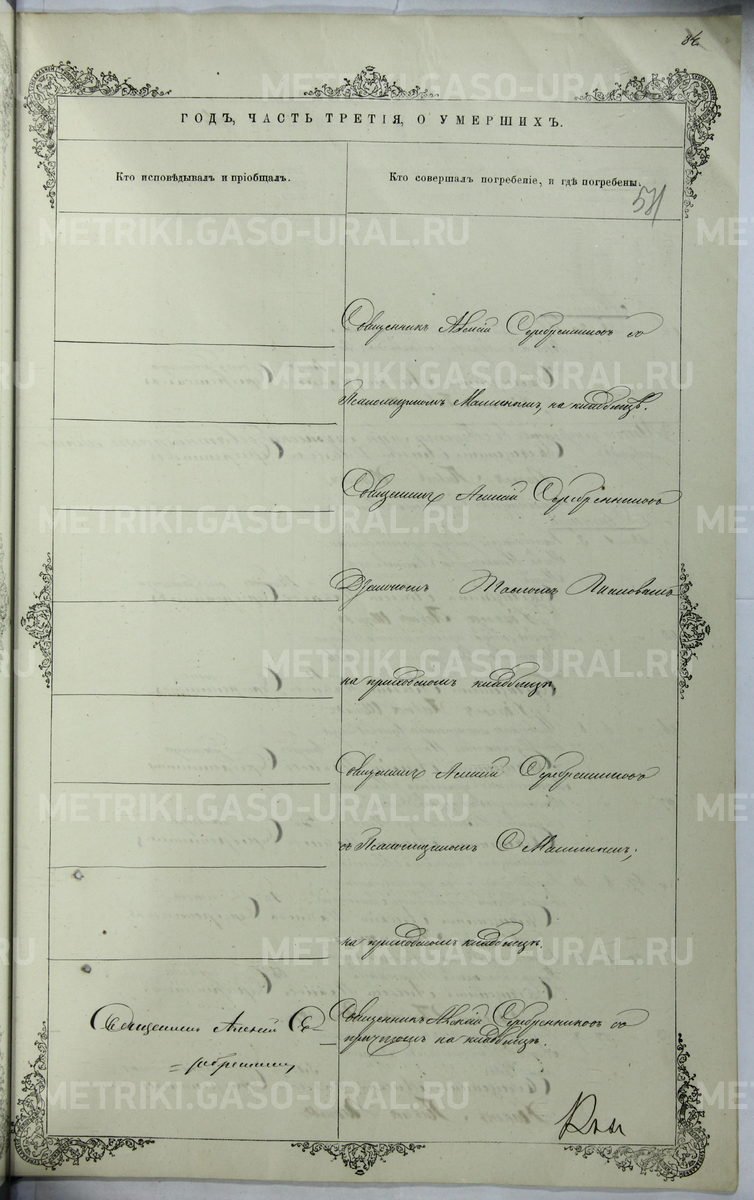 ГОДЪ, ЧАСТЬ ТРЕТІЯ, О УМЕРШИХЪ.
Кто исповѣдывалъ и пріобщалъ.
Кто совершалъ погребеніе, и гдѣ погребены.
Священникъ Алексій Серебренниковъ со
Псаломщикомъ на кладбищѣ.
Священникъ Алексій Серебренниковъ
Павломъ
на приходскомъ кладбищѣ.
Священникъ Алексій Серебренниковъ
съ Псаломщикомъ
на приходскомъ кладбищѣ.
Священникъ Алексій Се-
ребренниковъ
Священникъ Алексій Серебренниковъ со
причтомъ на кладбищѣ.
METRIKI.GASO-URAL.RU